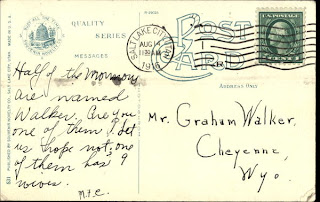 QUALITY
SERIES
MESSAGES
Half of the Mormons
are named
Walker. Are you
one of them? Let
us hope not; one
of them has 9
wives.
M.F.C.
POST
CARD
SALT LAKE CITY, UTAH
AUG 14
11:30 AM
ADDRESS ONLY
Mr. Graham Walker,
Cheyenne,
Wyo.
MADE IN U.S.A.